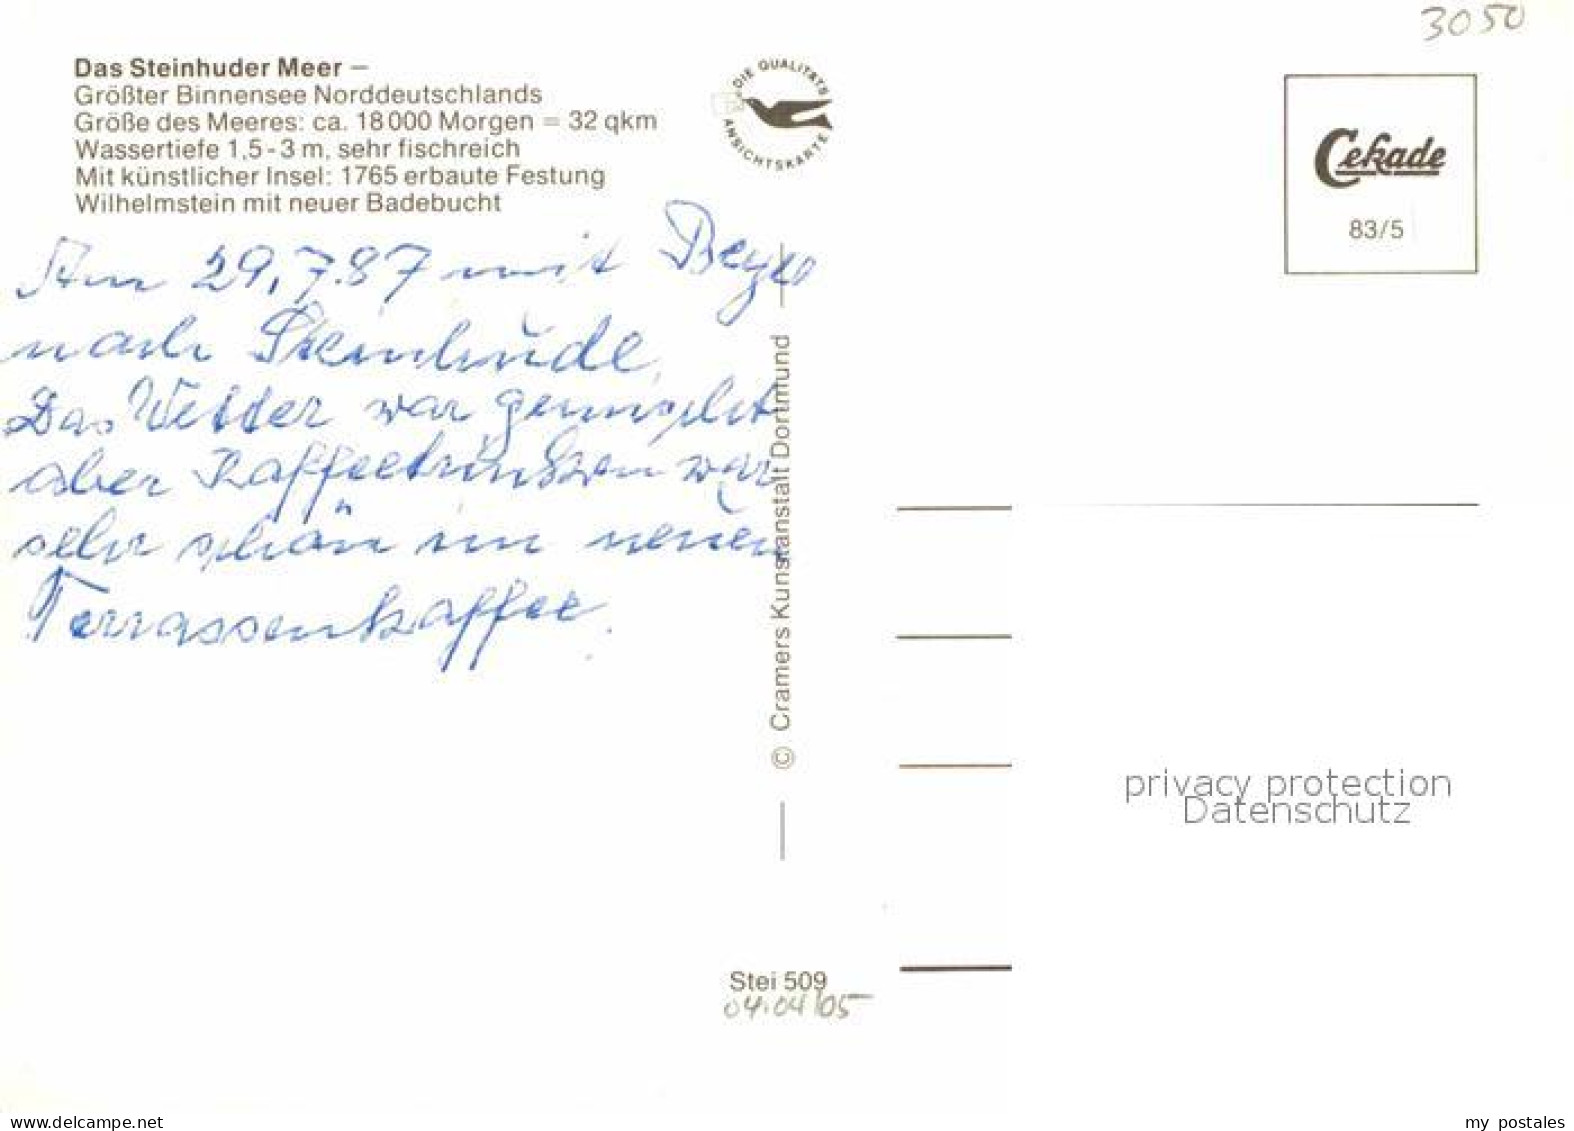 3050
Das Steinhuder Meer –
Größter Binnensee Norddeutschlands
Größe des Meeres: ca. 18 000 Morgen = 32 qkm
Wassertiefe 1,5 - 3 m, sehr fischreich
Mit künstlicher Insel: 1765 erbaute Festung
Wilhelmstein mit neuer Badebucht
DIE QUALITÄTS
ANSICHTSKARTE
Cekade
83/5
Am 29.7.87 mit
nach Steinhude.
Das Wetter war gemischt
aber Kaffeetrinken war
sehr schön im neuen
Terrassenkaffee.
© Cramers Kunstanstalt Dortmund
privacy protection
Datenschutz
Stei 509
04.04.05
www.delcampe.net
my_postales